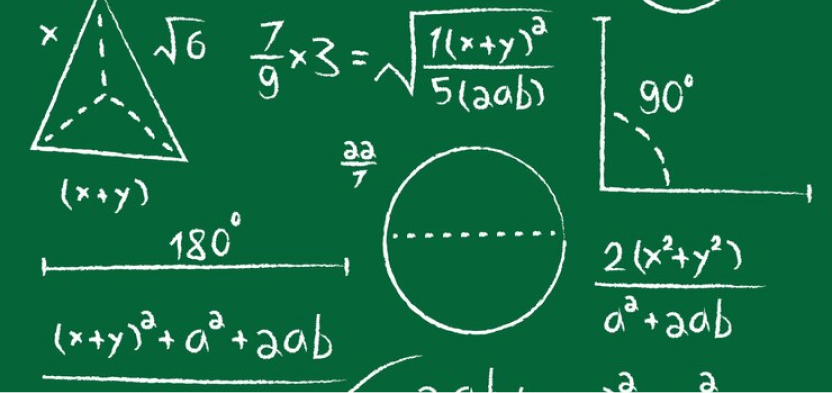 x
√6
7/9 × 3 = √(1(x+y)² / 5(2ab))
90°
22/7
(x+y)
180°
2(x²+y²) / a²+2ab
(x+y)²+a²+2ab